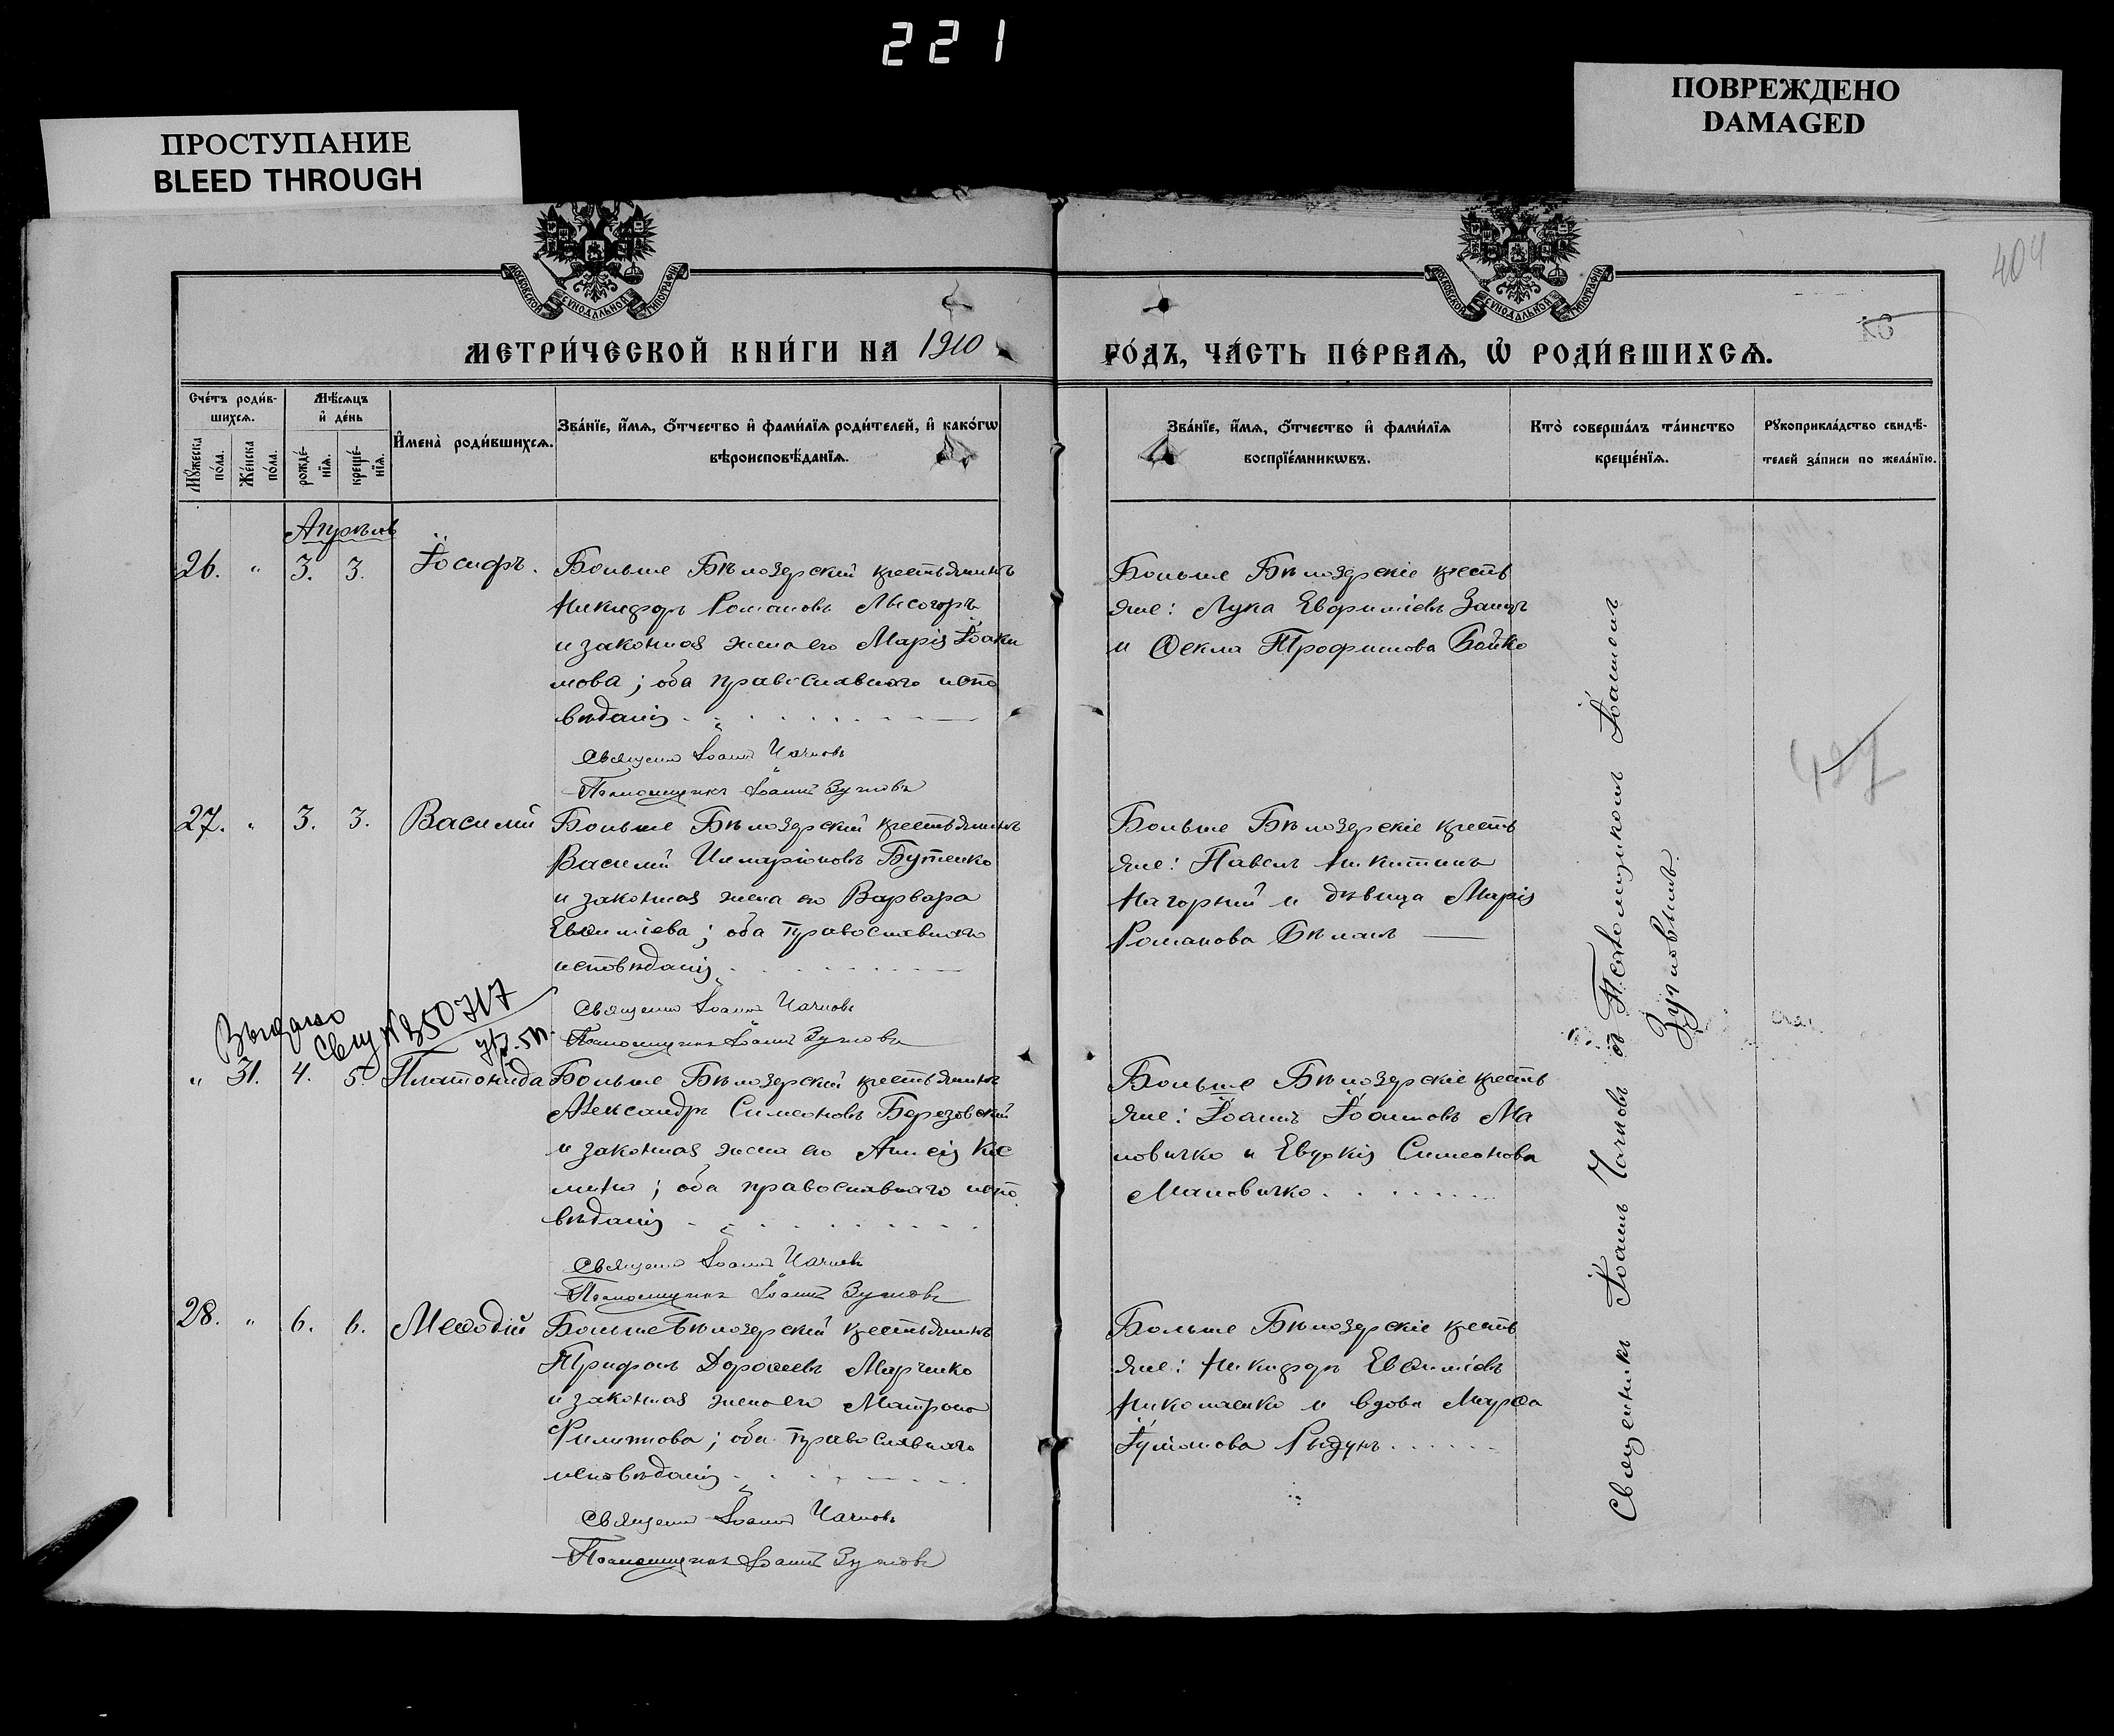 221
ПРОСТУПАНИЕ
BLEED THROUGH
ПОВРЕЖДЕНО
DAMAGED
404
МОСКОВСКОЙ СѴНОДАЛЬНОЙ ТИПОГРАФІИ
МОСКОВСКОЙ СѴНОДАЛЬНОЙ ТИПОГРАФІИ
МЕТРИ́ЧЕСКОЙ КНИ́ГИ НА 1910
ГО́ДЪ, ЧА́СТЬ ПЕ́РВАѦ, Ѡ҆ РОДИ́ВШИХСѦ.
Сче́тъ роди́в-
шихсѧ.
Мѣ́сѧцъ
и҆ де́нь
Мꙋ́жеска
по́ла.
Же́нска
по́ла.
рожде́-
нїѧ.
креще́-
нїѧ.
И҆мена̀ роди́вшихсѧ.
Зва́нїе, и҆́мѧ, ѻ҆́тчество и҆ фами́лїѧ роди́телей, и҆ како́гѡ
вѣроисповѣ́данїѧ.
Зва́нїе, и҆́мѧ, ѻ҆́тчество и҆ фами́лїѧ
воспрїе́мникѡвъ.
Кто̀ соверша́лъ та́инство
креще́нїѧ.
Рꙋкоприкла́дство свидѣ́-
телей за́писи по жела́нїю.
Апрѣль
26. " 3. 3. Іосифъ.
Больше Бѣлозерскій крестьянинъ
Никифоръ Романовъ Лысогоръ
и законная жена его Марія Іоаки
мова; оба православнаго испо
вѣданія
Священн Іоаннъ Чачновъ
Псаломщикъ Іоаннъ Зугновъ
Больше Бѣлозерскіе кресть
яне: Лука Евфиміевъ Заецъ
и Ѳекла Трофимова Бойко
27. " 3. 3. Василій
Больше Бѣлозерскій крестьянинъ
Василій Иларіоновъ Бутенко
и законная жена его Варвара
Евѳиміева; оба православнаго
исповѣданія
Священн Іоаннъ Чачновъ
Псаломщикъ Іоаннъ Зугновъ
Больше Бѣлозерскіе кресть
яне: Павелъ Никитинъ
Нагорній и дѣвица Марія
Романова Бѣлаш
427
Выдано
" 31. 4. 5. Платонида
Больше Бѣлозерскій крестьянинъ
Александръ Симеоновъ Березовскій
и законная жена его Анисія Кос
мина; оба православнаго испо
вѣданія
Священн Іоаннъ Чачновъ
Псаломщикъ Іоаннъ Зугновъ
Больше Бѣлозерскіе кресть
яне: Іоаннъ Іоанновъ Ма
новичко и Евдокія Симеонова
Мановичко
28. " 6. 6. Меѳодій
Больше Бѣлозерскій крестьянинъ
Трифонъ Дороѳеевъ Марченко
и законная жена его Матрона
Филиппова; оба православнаго
исповѣданія
Священн Іоаннъ Чачновъ
Псаломщикъ Іоаннъ Зугновъ
Больше Бѣлозерскіе кресть
яне: Никифоръ Евѳиміевъ
Николаенко и вдова Марѳа
Священникъ Іоаннъ Чачновъ съ Псаломщикомъ Іоанномъ
Зугновымъ.